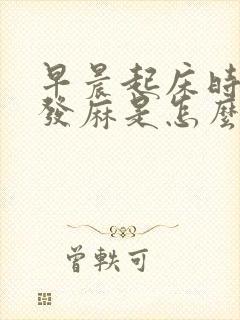 早晨起床時
發麻是怎麼
曾軼可